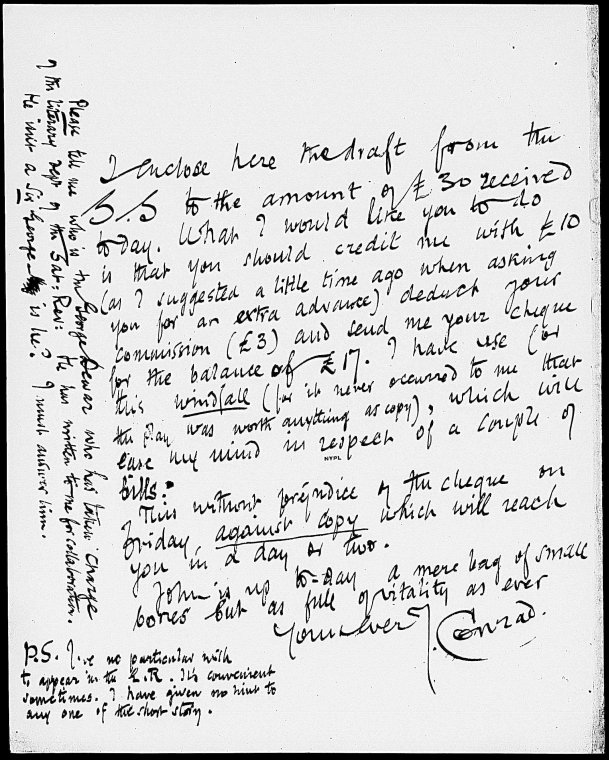 I enclose here the draft from the
S.S to the amount of £30 received
to day. What I would like you to do
is that you should credit me with £10
(as I suggested a little time ago when asking
you for an extra advance) deduct your
commission (£3) and send me your cheque
for the balance of £17. I have use for
this windfall (for it never occurred to me that
the play was worth anything as copy), which will
ease my mind in respect of a couple of
bills.
This without prejudice of the cheque on
Friday against copy which will reach
you in a day or two.
John is up to-day a mere bag of small
bones but as full of vitality as ever
Yours ever J. Conrad.
P.S. I've no particular wish
to appear in the E.R. It's convenient
sometimes. I have given no hint to
any one of the short story.
Please tell me who is the George Dewar who has taken charge
of the literary dept of the Sat: Rev: He has written to me for collaboration.
He isn't a Sir George is he? I must answer him.
NYPL